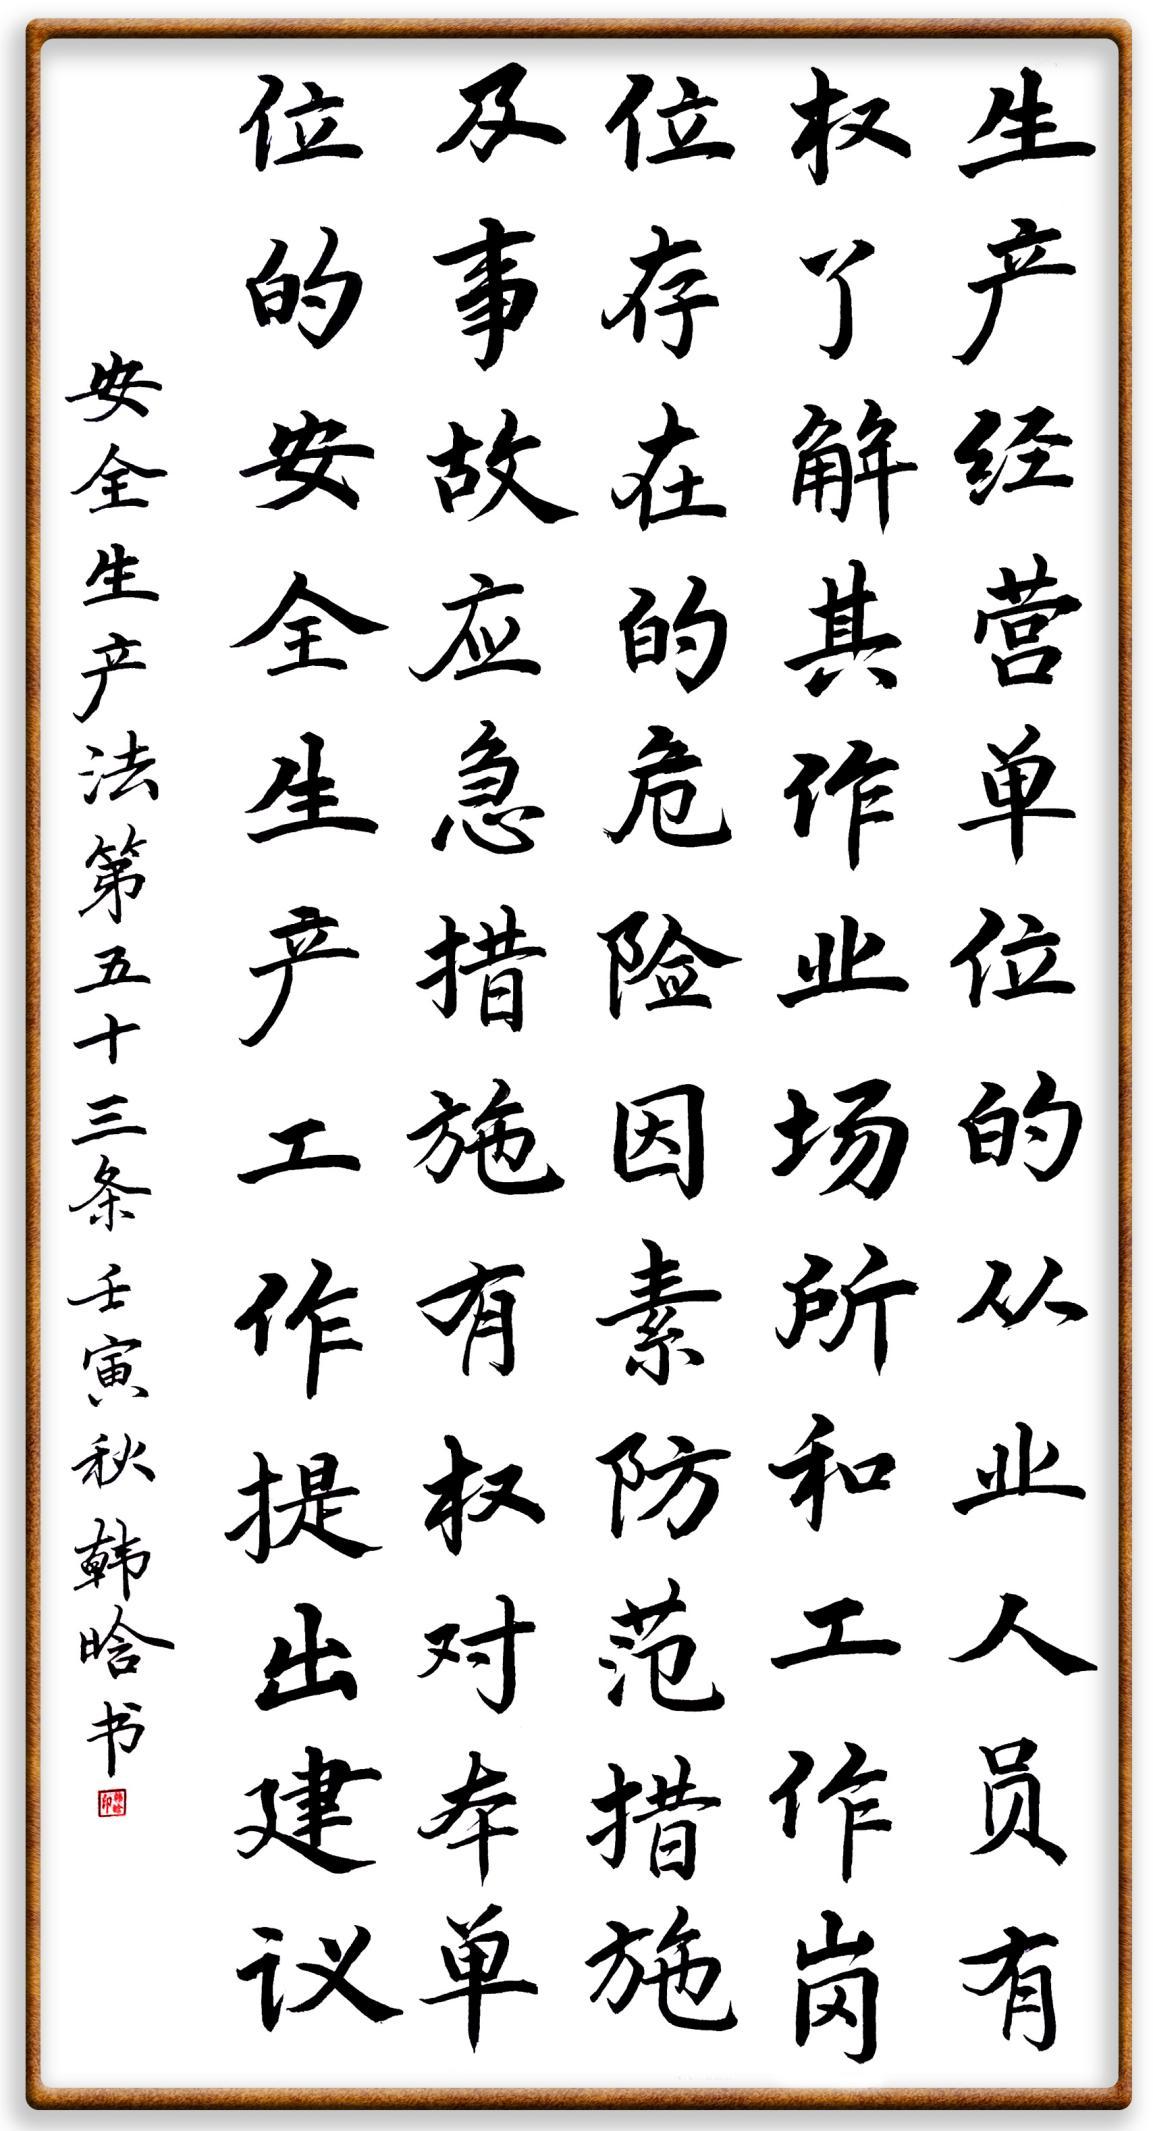 生产经营单位的从业人员有
权了解其作业场所和工作岗
位存在的危险因素防范措施
及事故应急措施有权对本单
位的安全生产工作提出建议
安全生产法第五十三条壬寅秋韩晗书